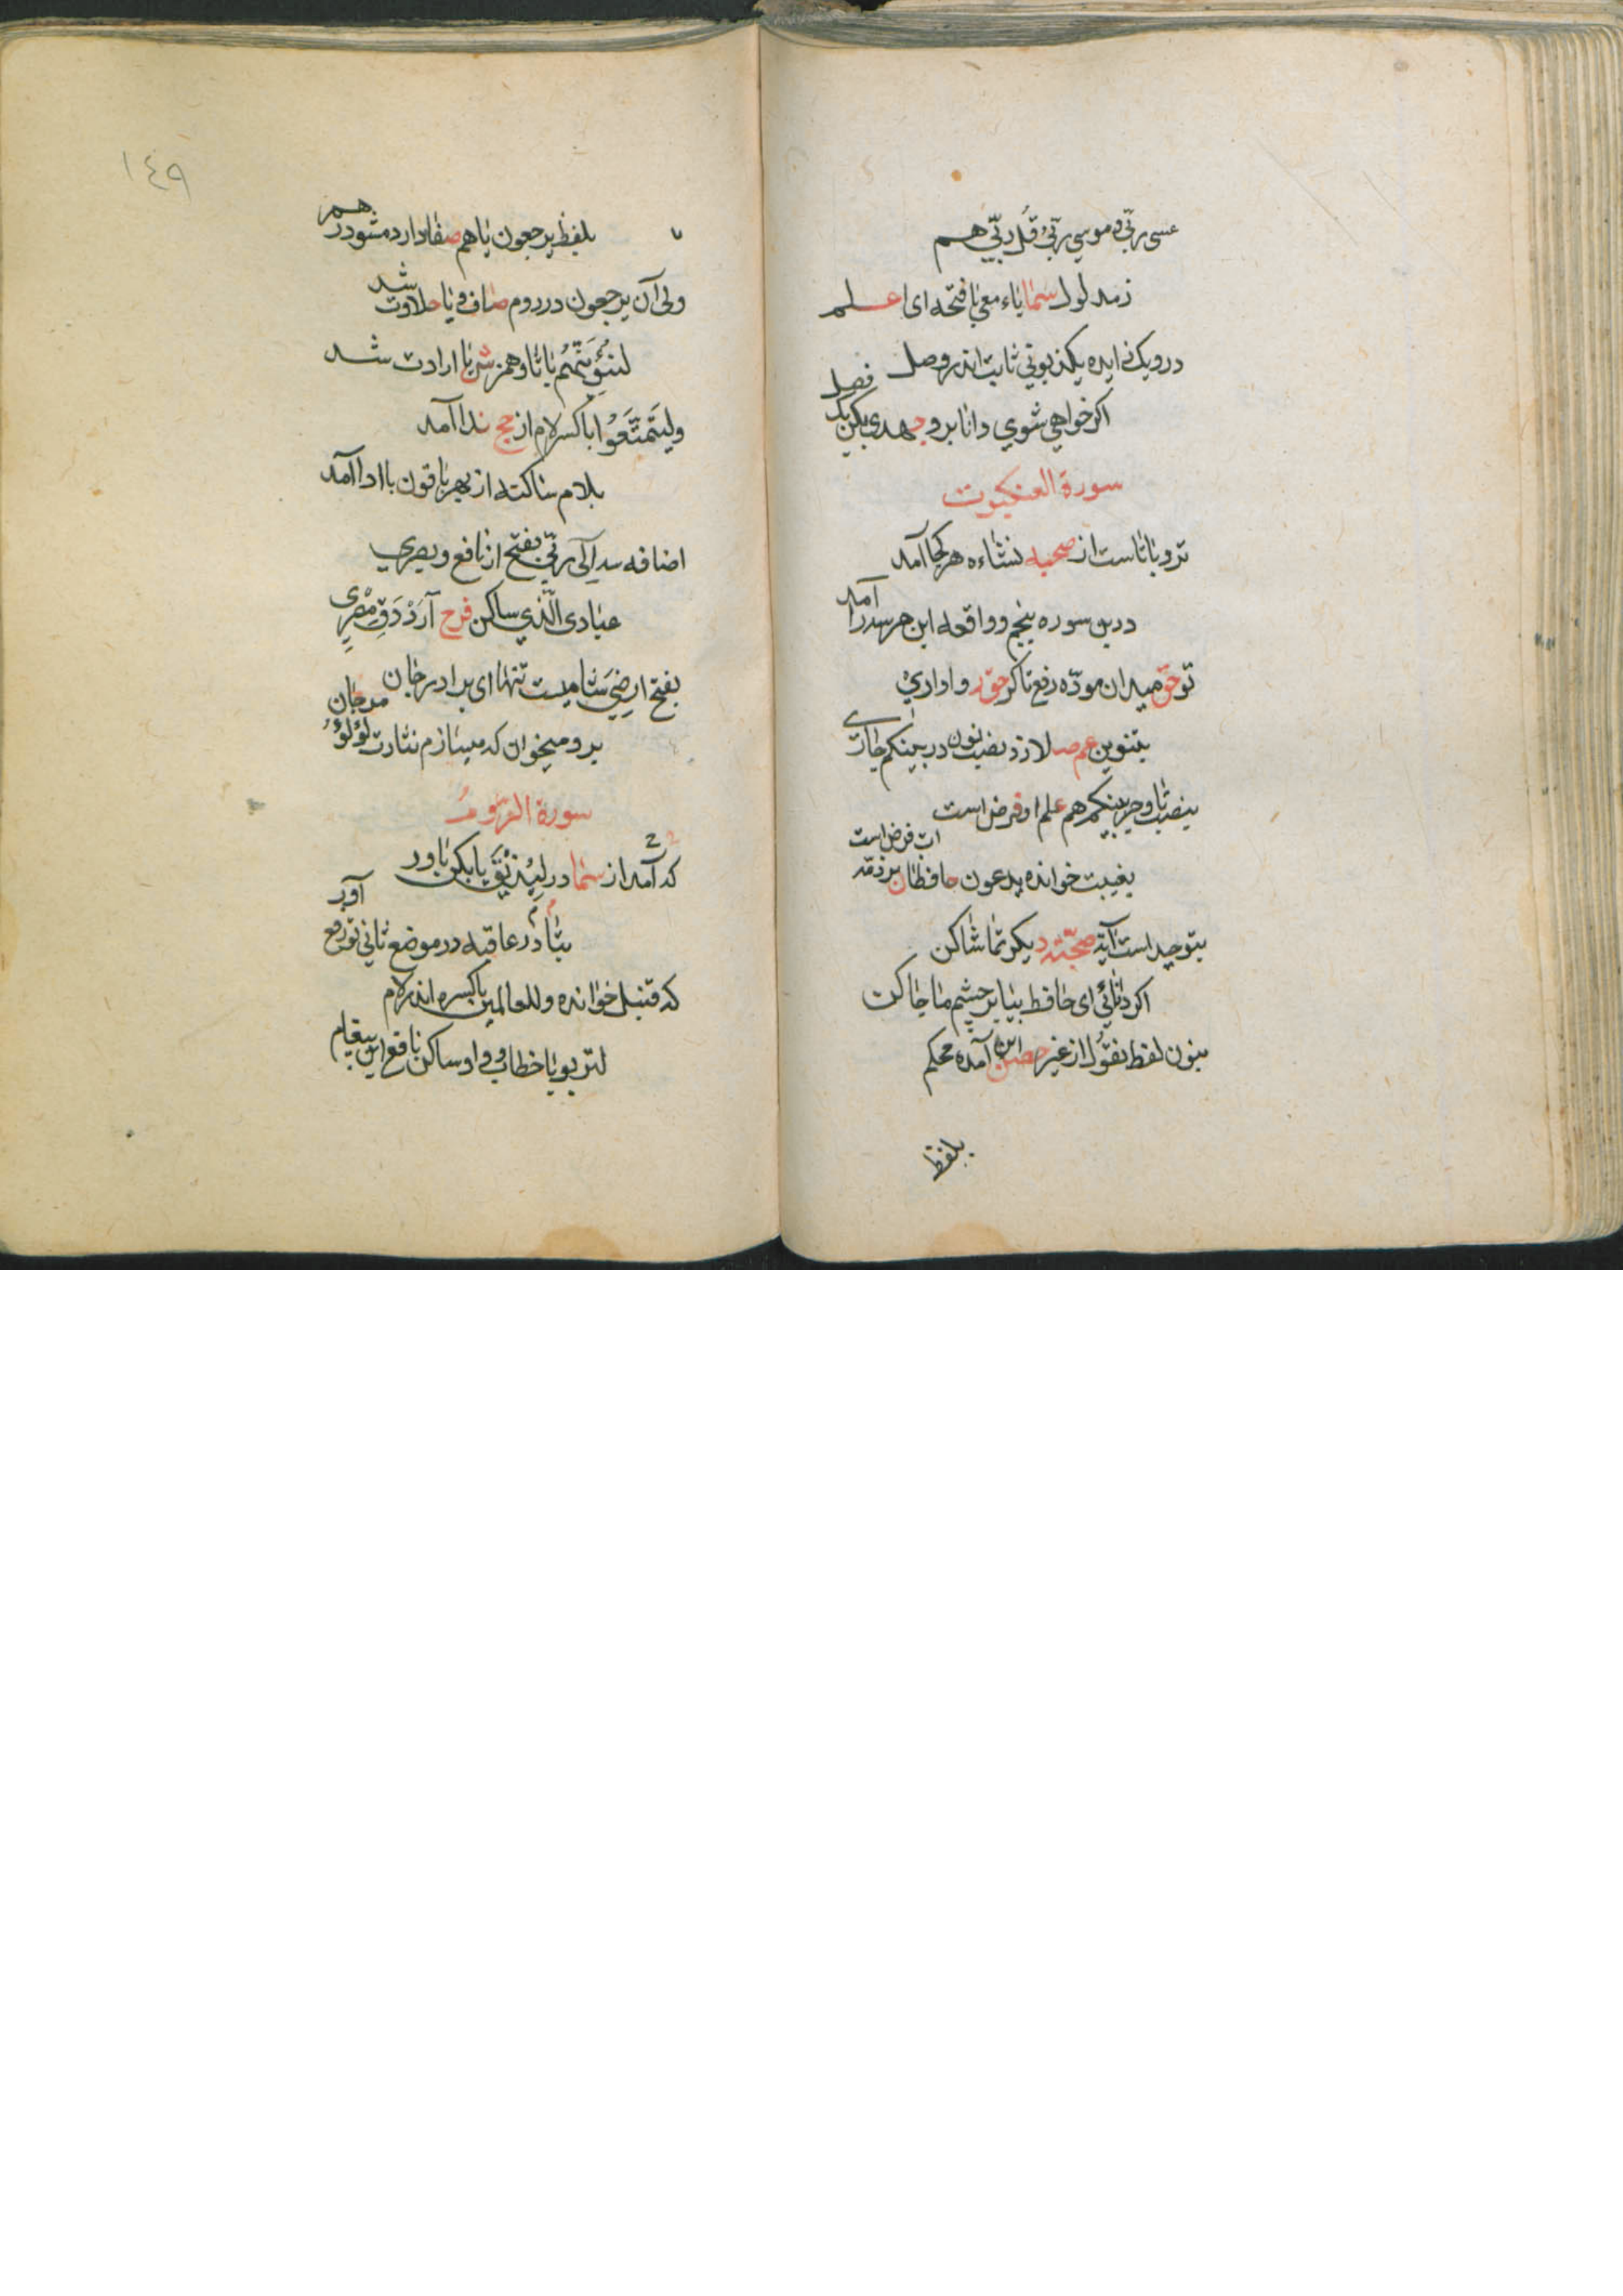 عسی ربّی و موسی ربّی قُل ربّی هم
ز مدلول سما یاء معی با فتحه ای اعلم
در و یک زایده یکذبونی ثابت اندر وصل
اکر خواهی شوی دانا برو جهدی بکن یک فصل
سورة العنکبوت
تروبا تاست از صحبه نشاءه هر کجا آمد
درین سوره بنجم و واقعه این هر سه را آمد
تو حق میدان مودّه رفع تا کر حق روا داری
بتنوین عم صد لازد نصب نون در بینکم جاری
بنصب تا و جر بینکم هم علم او فرض است
بغیبت خوانده یدعون حافظان بر ذمّه ات فرض است
بتوحید است آیة صحبّته دیکر تماشا کن
اکر دانائی ای حافظ بیا بر چشم ما جا کن
بنون لفظ نقوُل از غیر حصن این آمده محکم
بلفظ
١٤٩
بلفظ یرجعون یا هم صفا دارد مشو درهم
ولی آن یرجعون در روم صاف و با حلاوت شد
لنبُوِّئَنَّهُم با ثا و همز ش با ارادت شد
ولیَتَمتَّعُوا با کسر لام از حج ندا آمد
بلام ساکنه از بهر باقون با ادا آمد
اضافه سه الی ربّی بفتح از نافع و بصری
عبادی الّذی ساکن فرح آرَدْ دَقِ مِصْرِی
بفتح ارضِیَ شامیست تنها ای برادر جان
برو میخوان که میسازم نثارت لؤلؤ مرجان
سورة الرّوم
که آمد از سما در لِیُذیْقَ یا بکن باور
بتا در عاقبه در موضع ثانی تو رفع آور
که قنبل خوانده وللعالمین با کسره اندر لام
لتربو با خطاب و واو ساکن نافع این پیغام